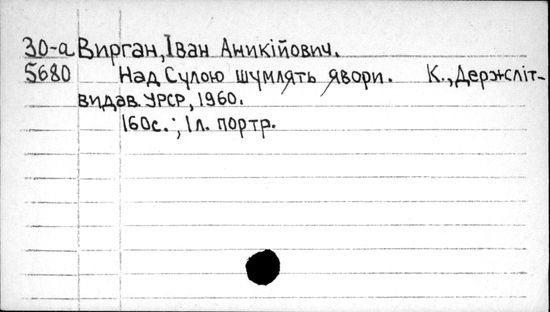 30-а Вирган, Іван Аникійович.
5680 Над Сулою шумлять явори. К., Держсліт-
видав УРСР, 1960.
160с.; 1л. портр.